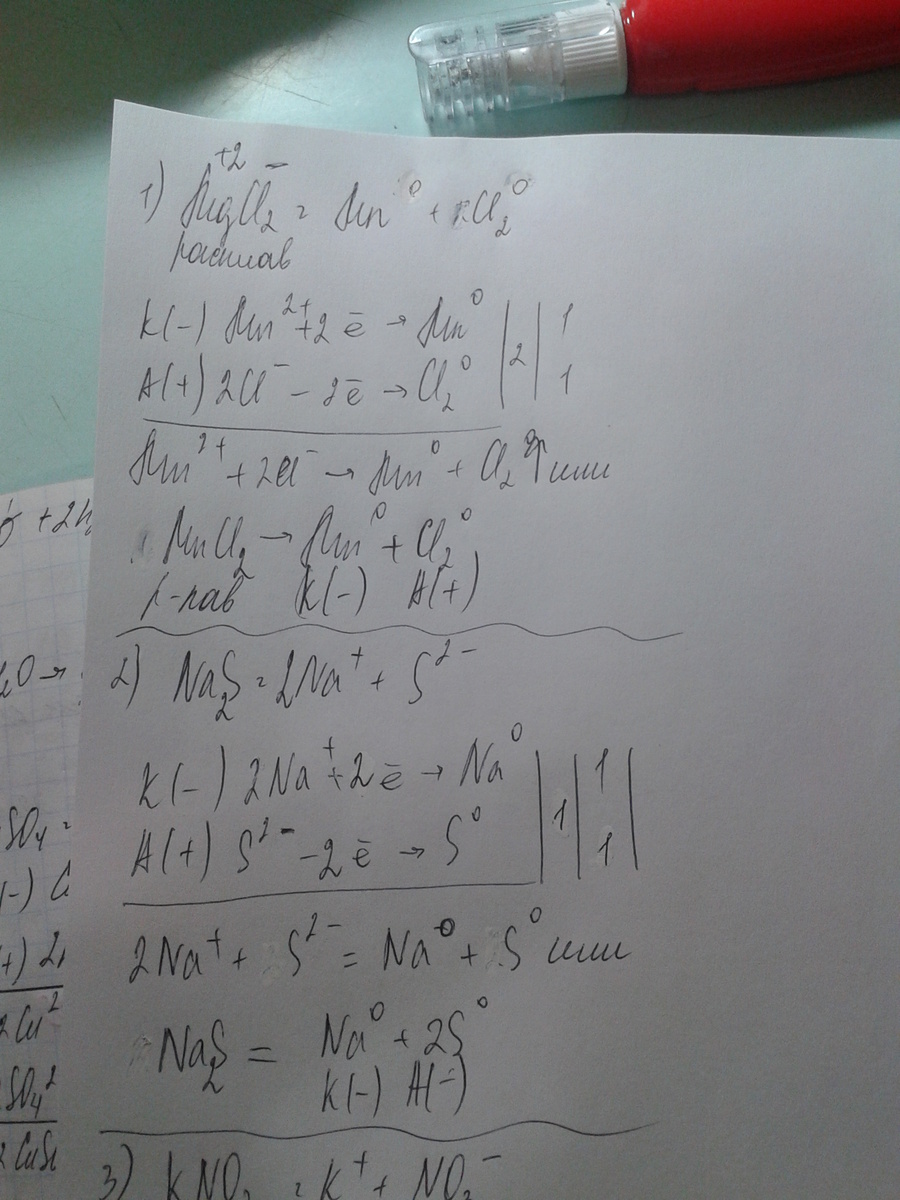 1) MgCl₂ = Mn⁰ + Cl₂⁰
+2 −
расплав
K(-) Mn²⁺ +2ē → Mn⁰ | 2 | 1
A(+) 2Cl⁻ - 2ē → Cl₂⁰ 1
Mn²⁺ + 2Cl⁻ → Mn⁰ + Cl₂⁰↑ или
MnCl₂ → Mn⁰ + Cl₂⁰
р-лав K(-) A(+)
2) Na₂S = 2Na⁺ + S²⁻
K(-) 2Na⁺ +2ē → Na⁰ | 1 | 1 |
A(+) S²⁻ - 2ē → S⁰ 1
2Na⁺ + S²⁻ = Na⁰ + S⁰ или
Na₂S = Na⁰ + 2S⁰
K(-) A(-)
3) KNO₃ = K⁺ + NO₃⁻